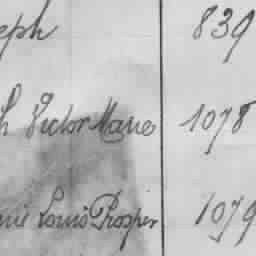 eph 839
h Victor Marie 1078
rie Louis Prosper 1079